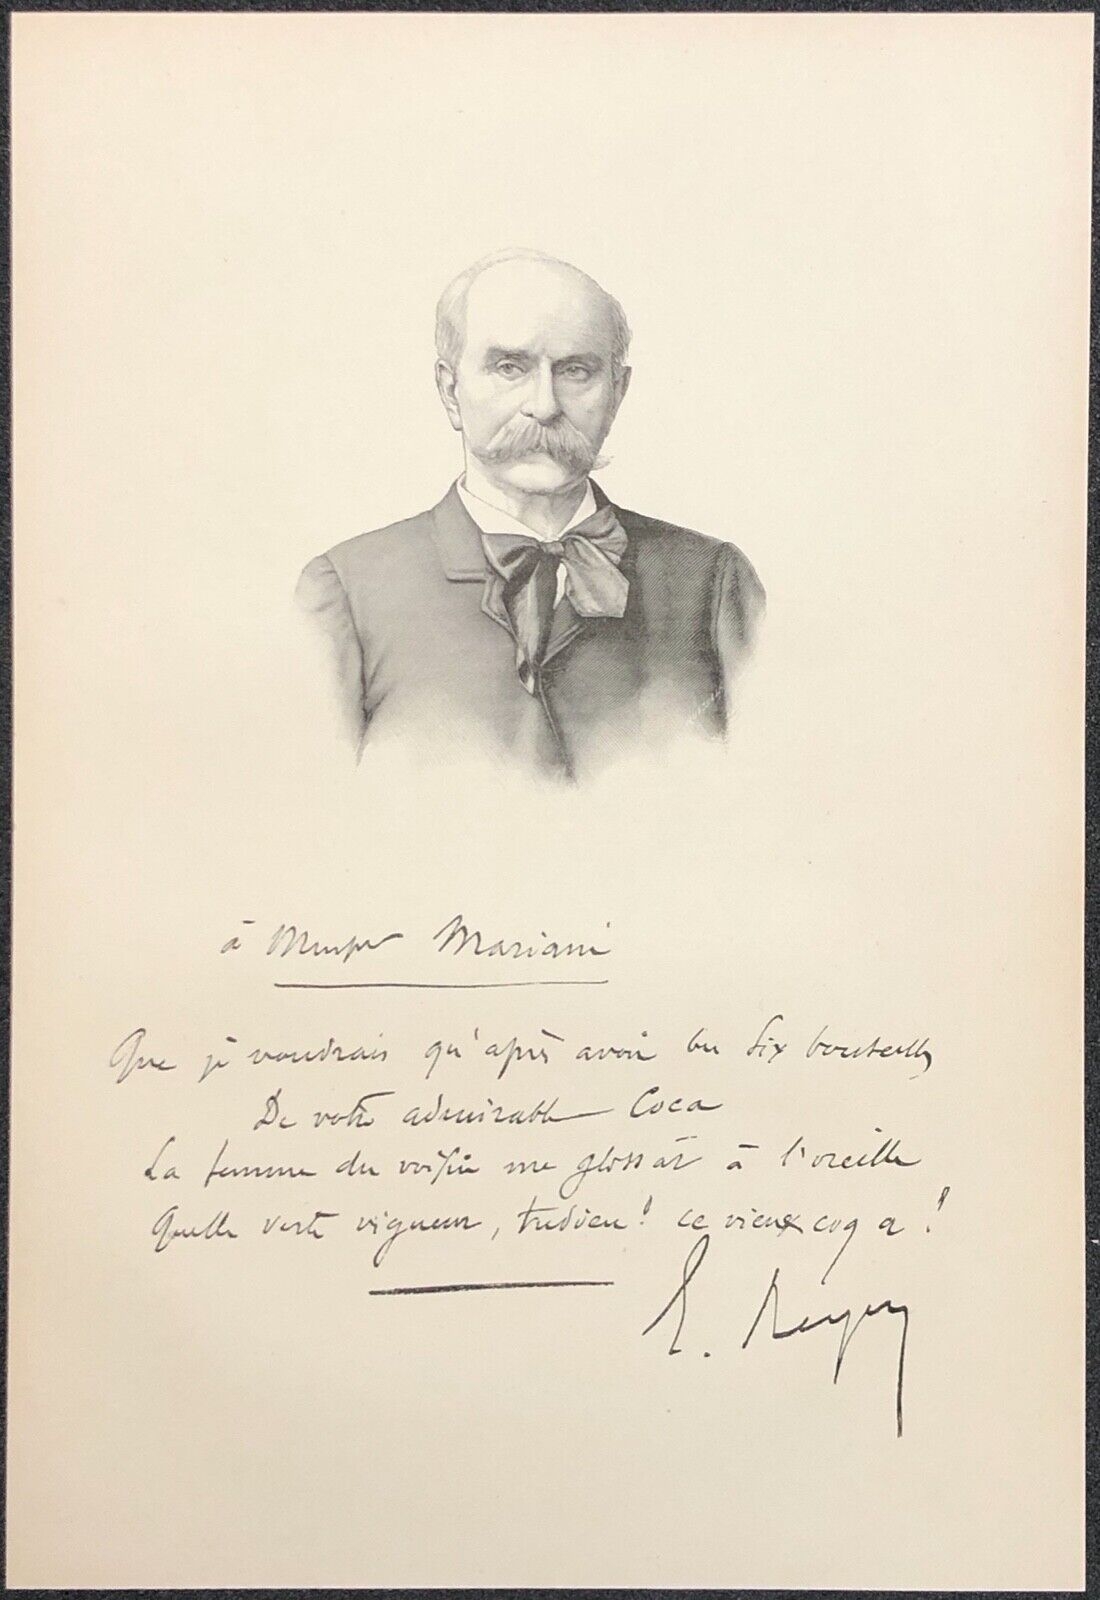 à Monsieur Mariani
Que je voudrais qu'après avoir bu six bouteilles
De votre admirable Coca
La femme du voisin me glossât à l'oreille
Quelle verte vigueur, tudieu! ce vieux coq a!
E. Reyer